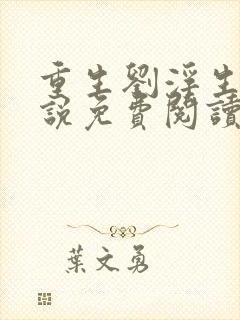 重生劉淫生
說免費閱讀
葉文勇